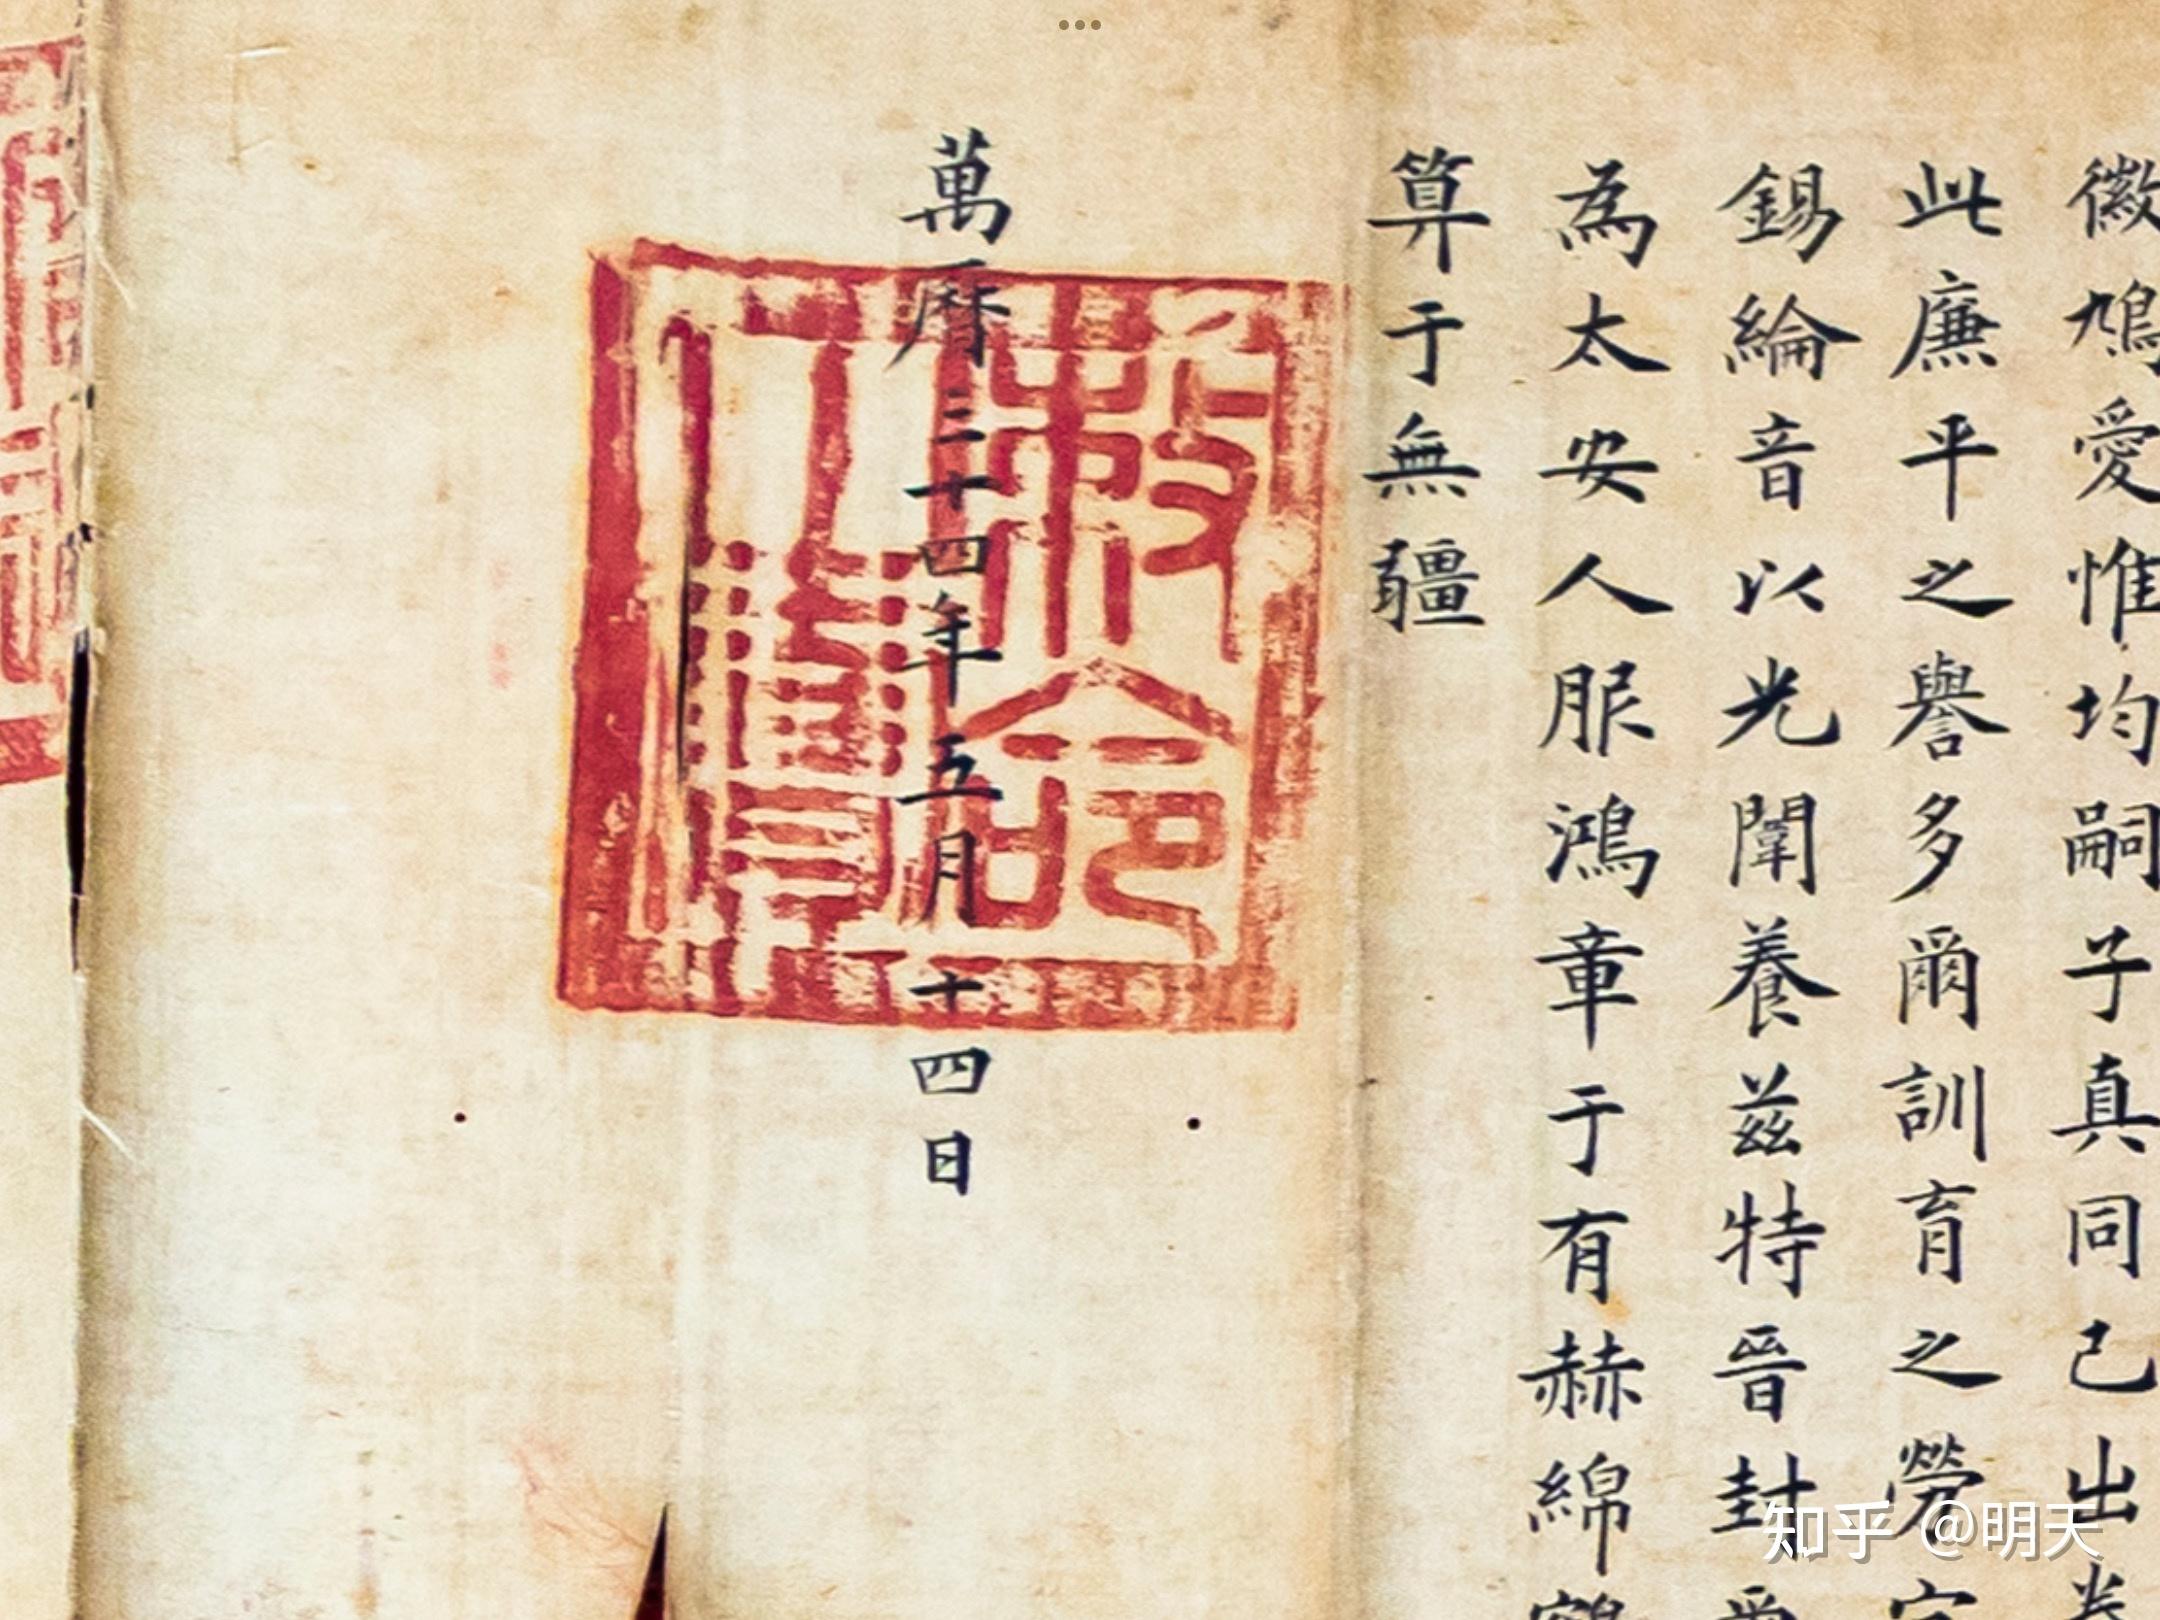 徽鳩愛惟均嗣子真同己出
此廉平之譽多爾訓育之勞
錫綸音以光闈養茲特晉封
為太安人服鴻章于有赫綿
算于無疆
萬曆三十四年五月十四日
敕命
之寶
知乎 @明天